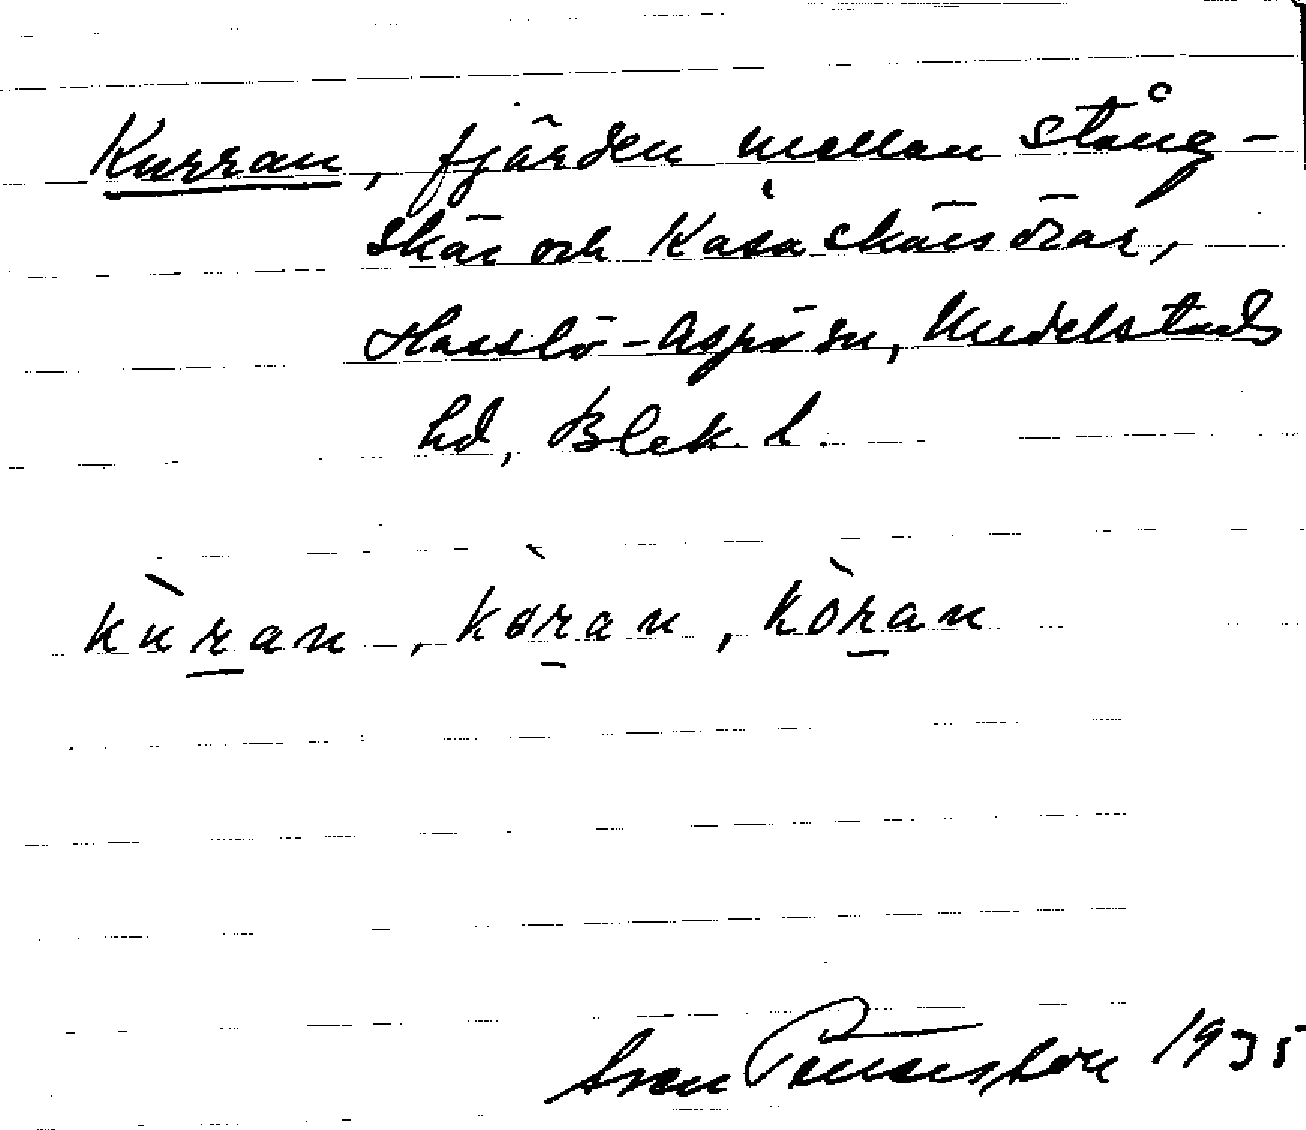 Kurran, fjärden mellan Stång-
skär och Kasaskärsörar,
Hasslö-Aspö sn, Medelstads
hd, Blek. l.
kùran, kòran, kòran
Sven 1935